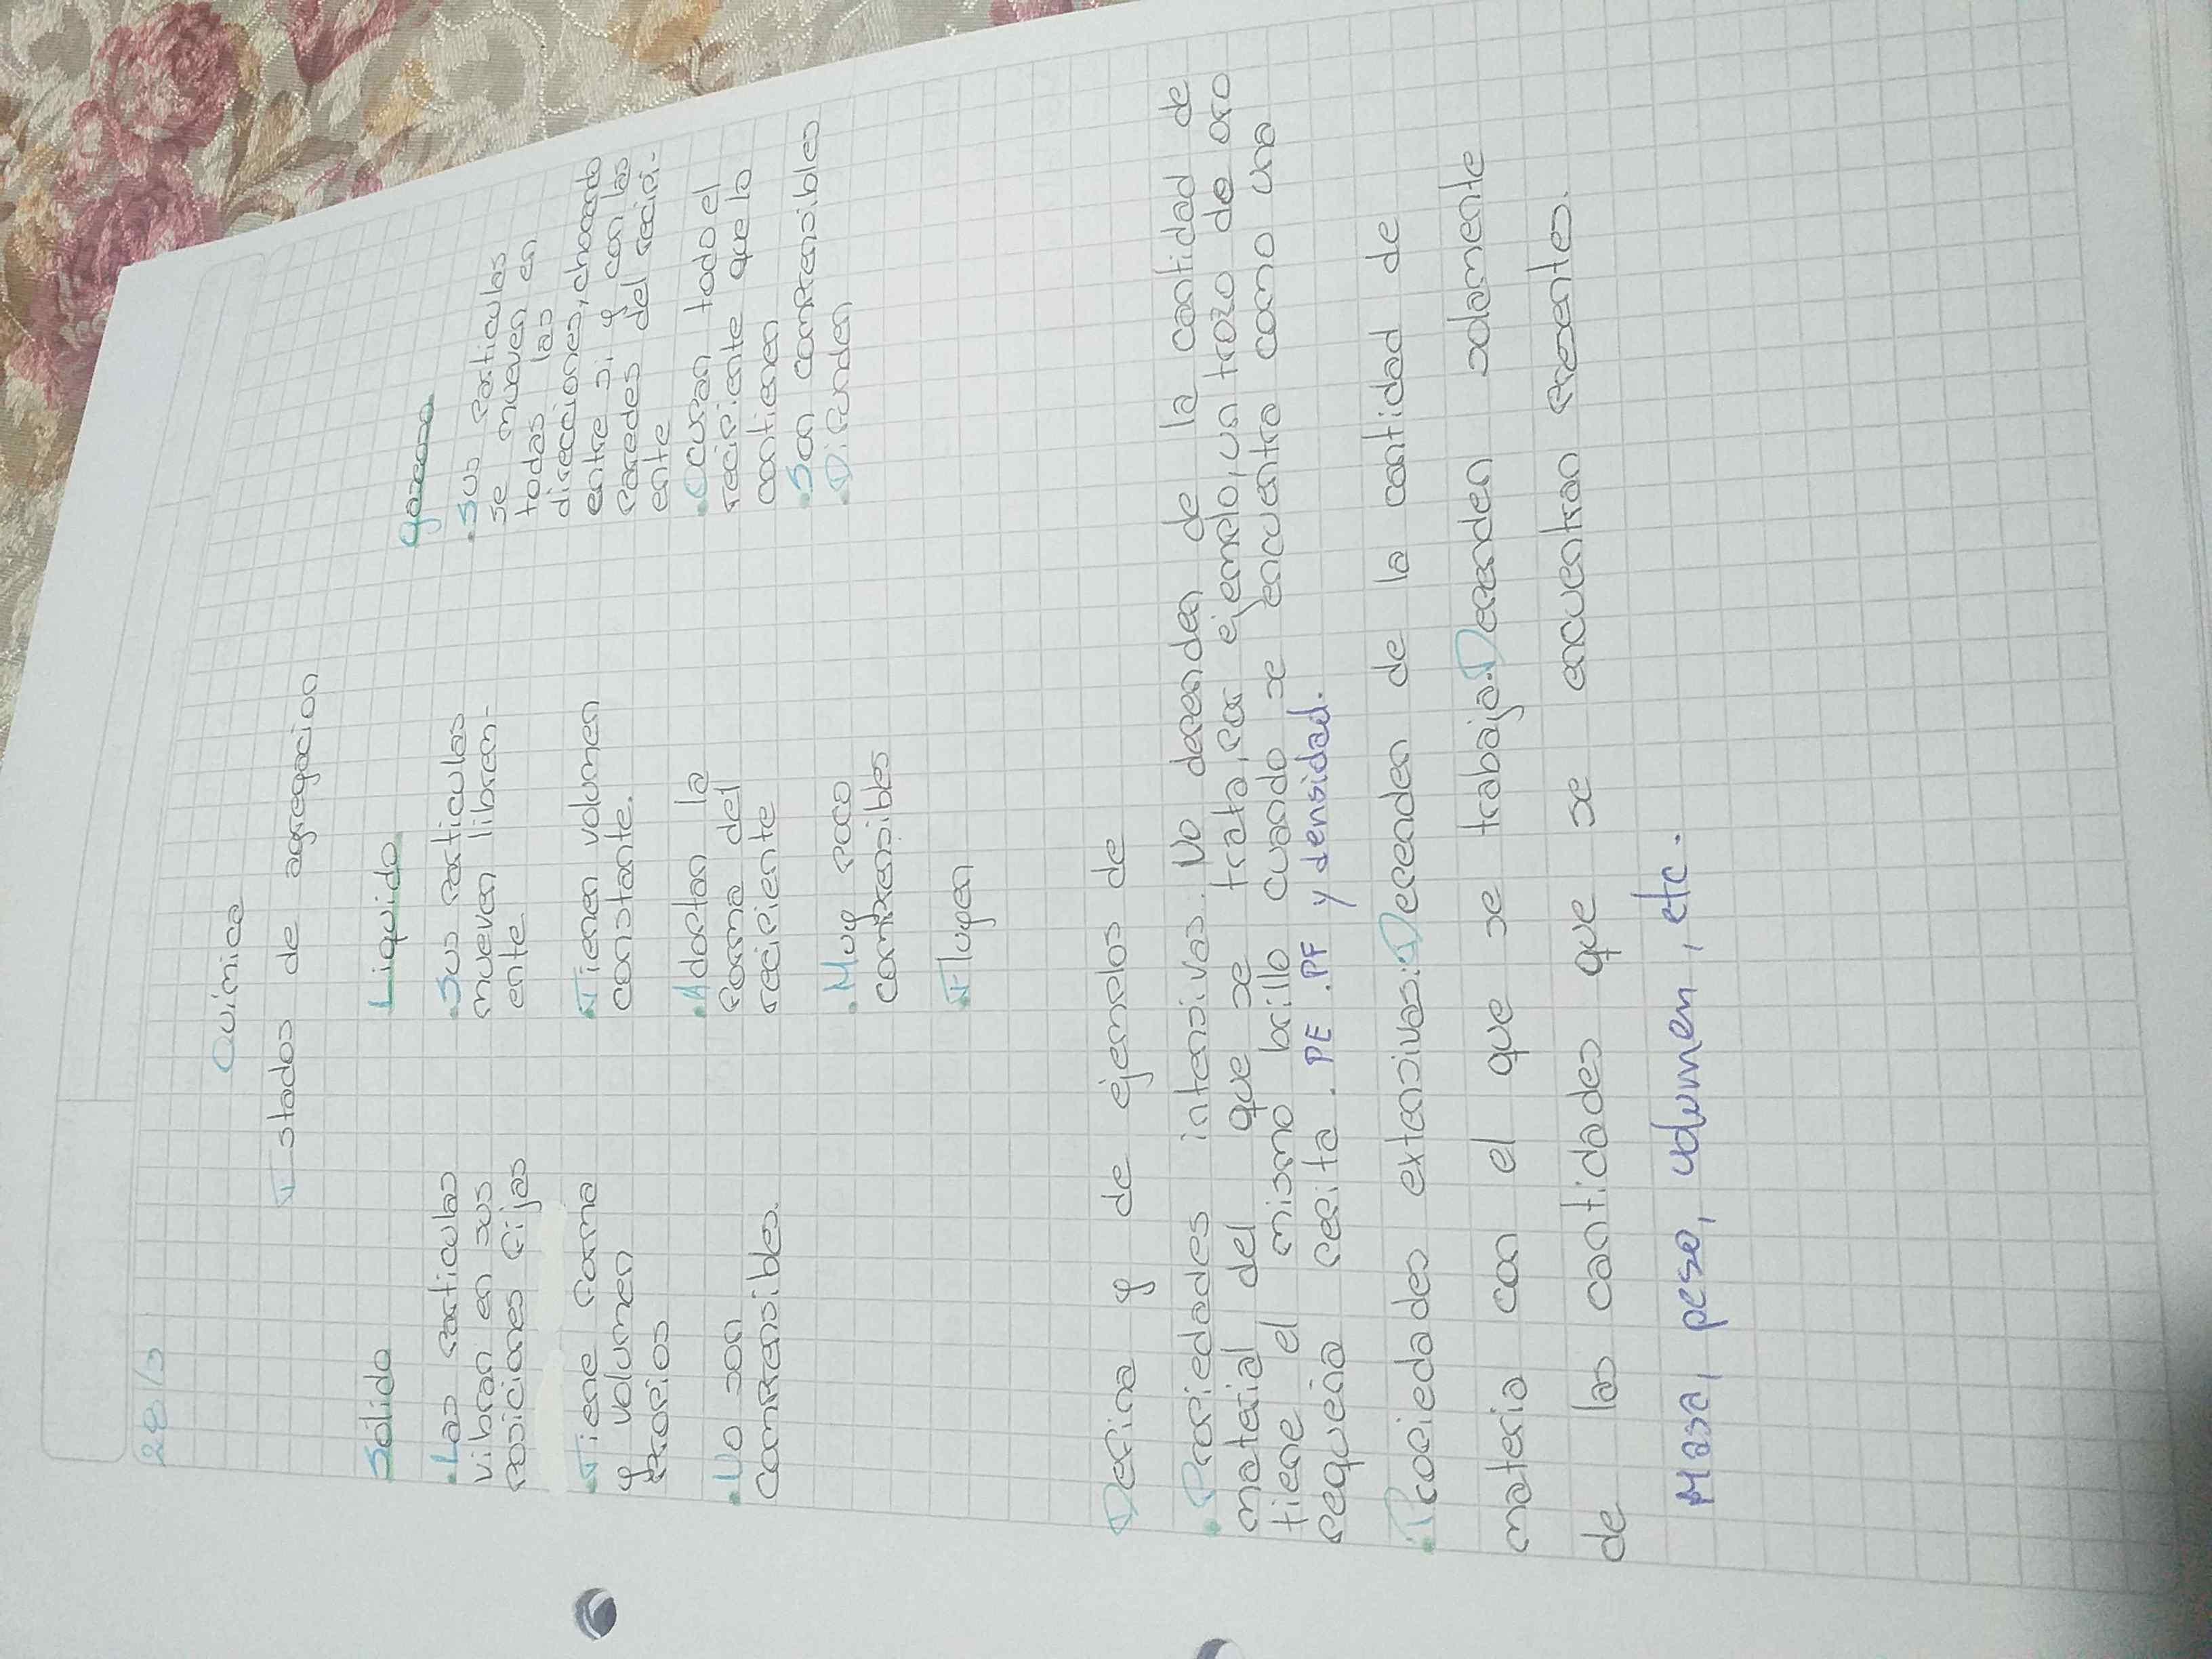 28/3
Química
Estados de agregacion
Sólido
. Las particulas
vibran en sus
posiciones fijas
. Tiene forma
y volumen
propios
. No son
compresibles.
Liquido
. Sus particulas
mueven librem-
ente
. Tienen volumen
constante.
. Adoptan la
forma del
recipiente
. Muy poco
compresibles
. Fluyen
gaseoso
. Sus particulas
se mueven en
todas las
direcciones, chocando
entre si y con las
paredes del recipi-
ente
. Ocupan todo el
recipiente que lo
contienen
. Son compresibles
. Difunden
Defina y de ejemplos de
. Propiedades intensivas: No dependen de la cantidad de
material del que se trata, por ejemplo, un trozo de oro
tiene el mismo brillo cuando se encuentra como una
pequeña pepita. PE. PF y densidad.
. Propiedades extensivas: Dependen de la cantidad de
materia con el que se trabaja. Dependen solamente
de las cantidades que se encuentran presentes.
Masa, peso, volumen, etc.